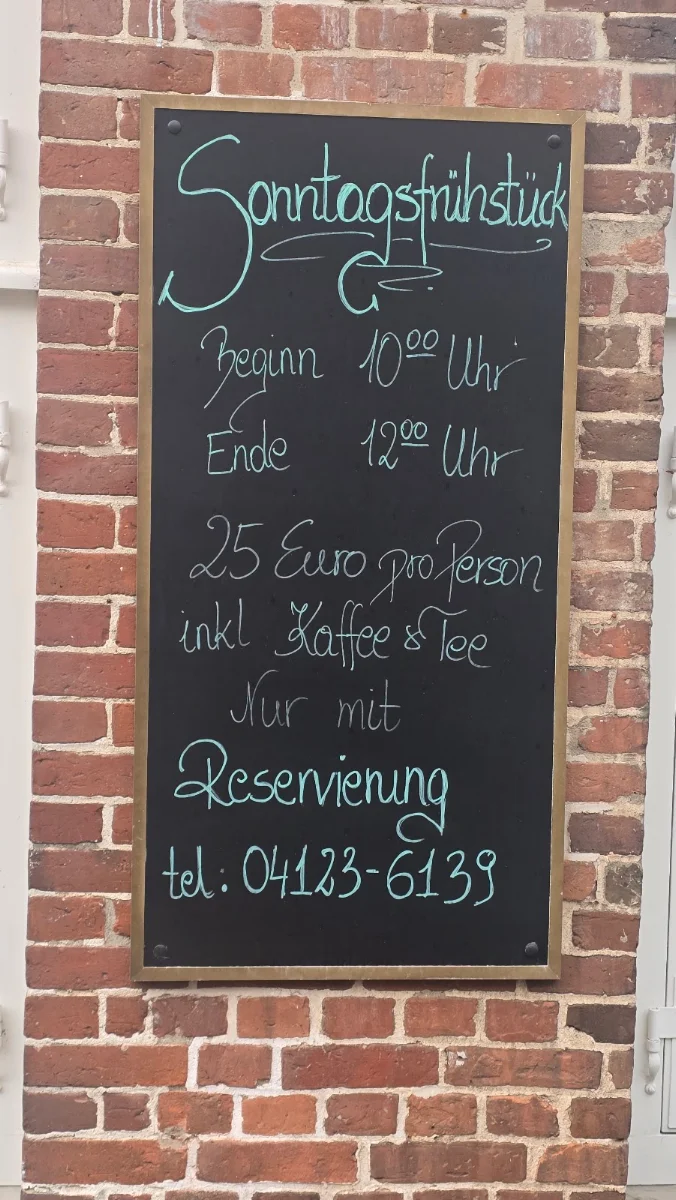 Sonntagsfrühstück
Beginn 10⁰⁰ Uhr
Ende 12⁰⁰ Uhr
25 Euro pro Person
inkl Kaffee & Tee
Nur mit
Reservierung
tel: 04123-6139